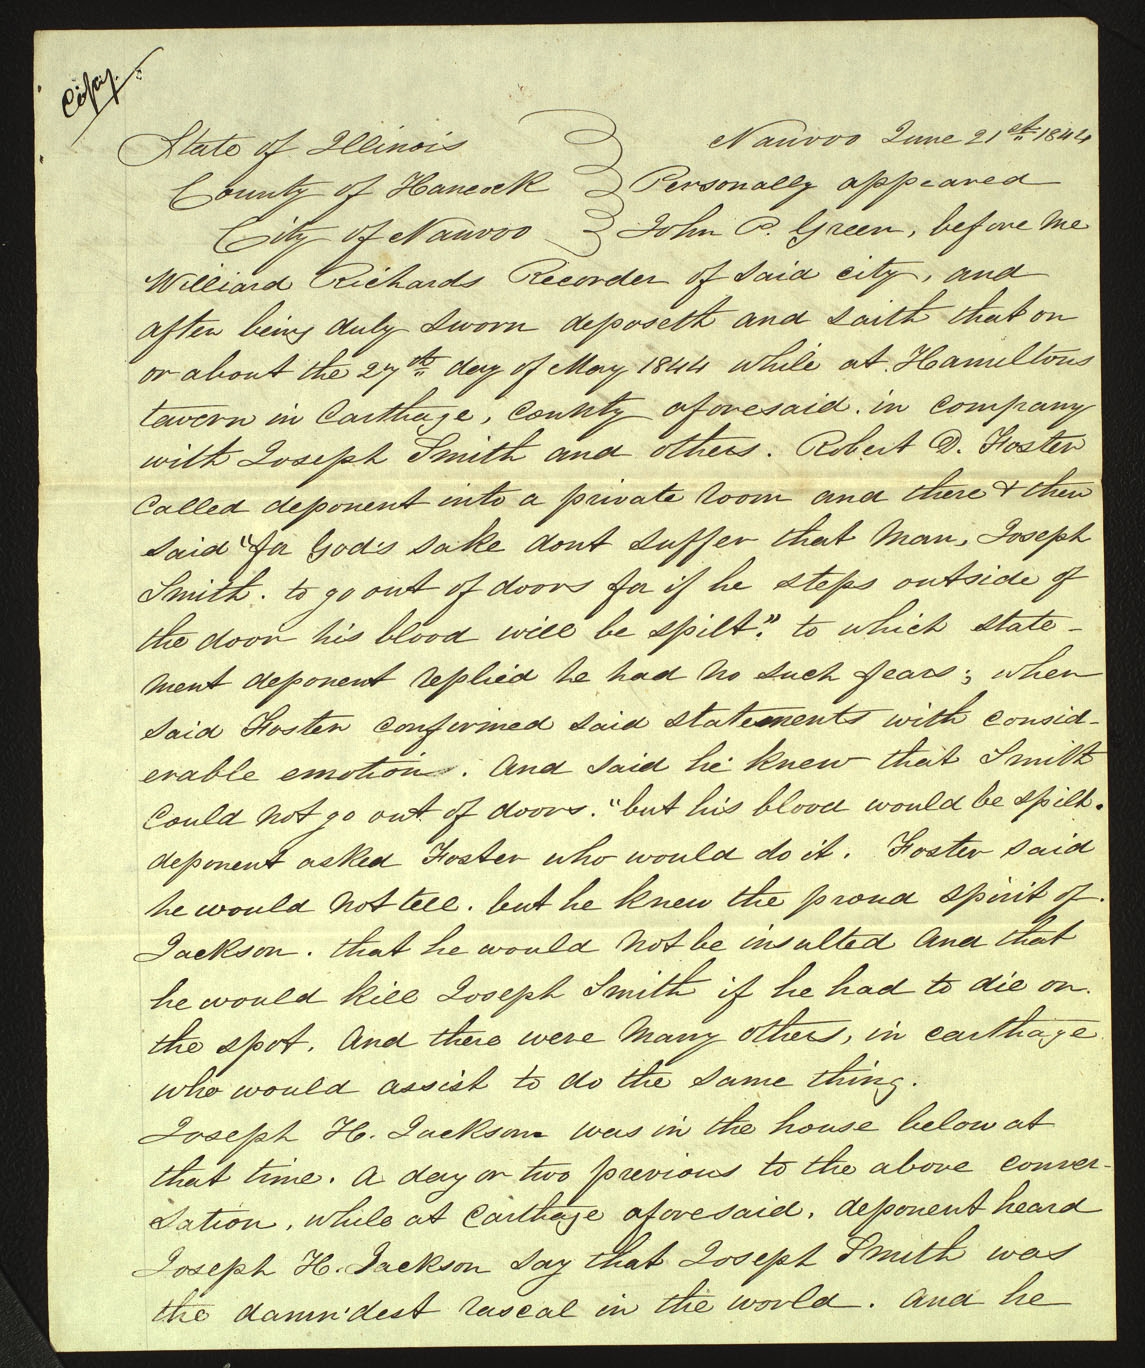 Copy.
State of Illinois Nauvoo June 21st 1844
County of Hancock Personally appeared
City of Nauvoo John P. Green, before me
Williard Richards Recorder of said city, and
after being duly sworn deposeth and saith that on
or about the 27th day of May 1844 while at Hamiltons
tavern in Carthage, County aforesaid. in company
with Joseph Smith and others. Robert D. Foster
Called deponent into a private room and there & then
said "for God's sake dont suffer that man, Joseph
Smith. to go out of doors for if he steps outside of
the door his blood will be spilt." to which state-
ment deponent replied he had no such fears; when
said Foster confirmed said statements with consid-
erable emotion. And said he knew that Smith
Could not go out of doors. "but his blood would be spilt.
deponent asked Foster who would do it. Foster said
he would not tell. but he knew the proud spirit of.
Jackson. that he would not be insulted And that
he would kill Joseph Smith if he had to die on.
the spot. And there were many others, in carthage
who would assist to do the same thing.
Joseph H. Jackson was in the house below at
that time. A day or two previous to the above conver-
sation, while at Carthage aforesaid. deponent heard
Joseph H. Jackson say that Joseph Smith was
the damn'dest rascal in the world. And he